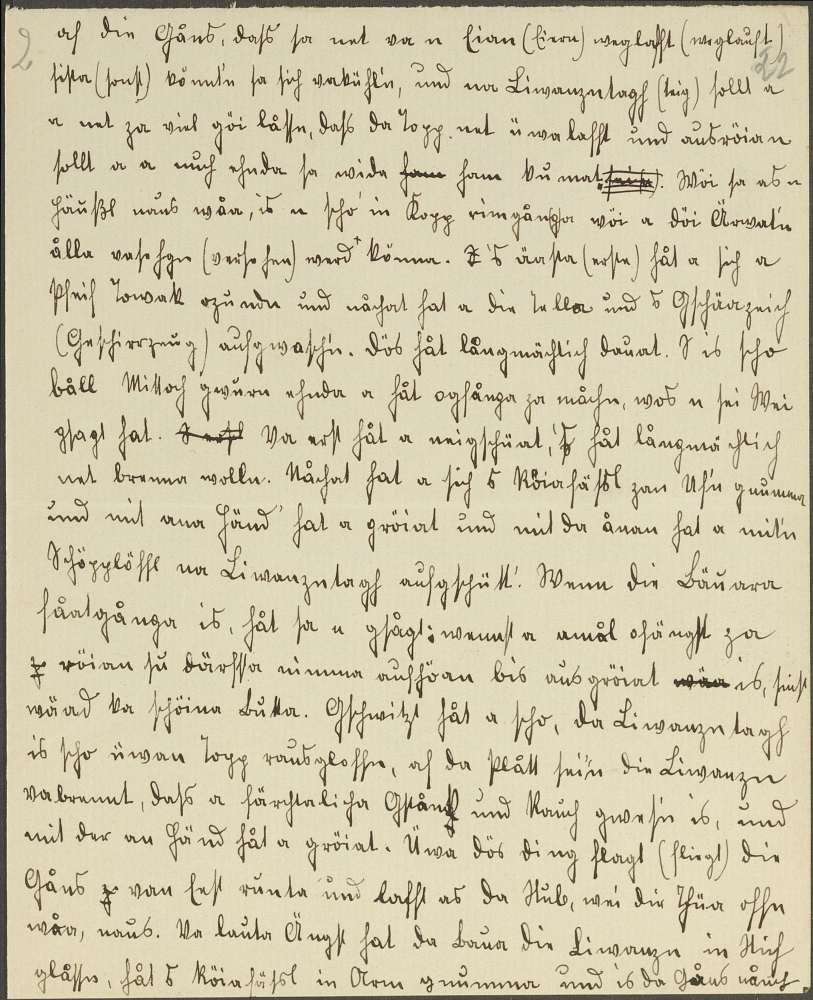 2 af die Gåns, dass sa net va n Eian (Eiern) weglafft (weglauft) 22
sista (sonst) könntn sa sich vakühl'n, und na Liwanzntagh (teig) sollt a
a net za viel göi låssn, dass da Topp net üwalafft und ausröian
sollt a a nuch ehnda sa wida ham ham kumat. Wöi sa as n
Häußl naus wåa, is n scho in Kopp rimgånga wöi a döi Årwat'n
ålla vasehgn (versehen) werd könna. 's äasta (erste) håt a sich a
Pfeif Towak ozundn und nåchat hat a die Tella und s Gschäazeich
(Geschirrzeug) aufgwasch'n. Dös håt långmächtich dauat. S is scho
båll Mittoch gwurn ehnda a håt ogfånga za måchn, wos n sei Wei
gsagt hat. Va erst håt a neigschüat, 's håt långmächtich
net brenna wolln. Nåchat hat a sich s Röiafässl zan Uf'n gnumma
und mit ana Händ' hat a gröiat und mit da ånan hat a mit'n
Schöpplöffl na Liwanzntagh aufgschütt'. Wenn die Bäuara
fåatgånga is, håt sa n gsågt: wennst a amål ofängst za
röian su därffsa nimma aufhöan bis ausgröiat is, sinst
wäad ka schöina Butta. Gschwitzt håt a scho, da Liwanzntagh
is scho üwan Topp rausgloffn, af da Plått sei'n die Liwanzn
vabrennt, dass a färchtalicha Gstånk und Rauch gwes'n is, und
mit der an Händ håt a gröiat. Üwa dös ding flagt (fliegt) die
Gåns van Nest runta und lafft as da Stub, wei die Thüa offn
wåa, naus. Va lauta Ängst hat da Baua die Liwanzn in Stich
glåssn, håt s Röiafässl in Arm gnumma und is da Gåns nåuch